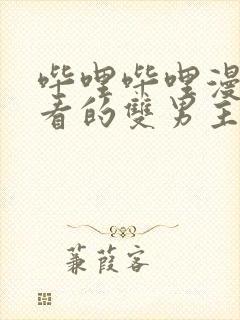 哔哩哔哩漫
看的雙男主
蒹葭客